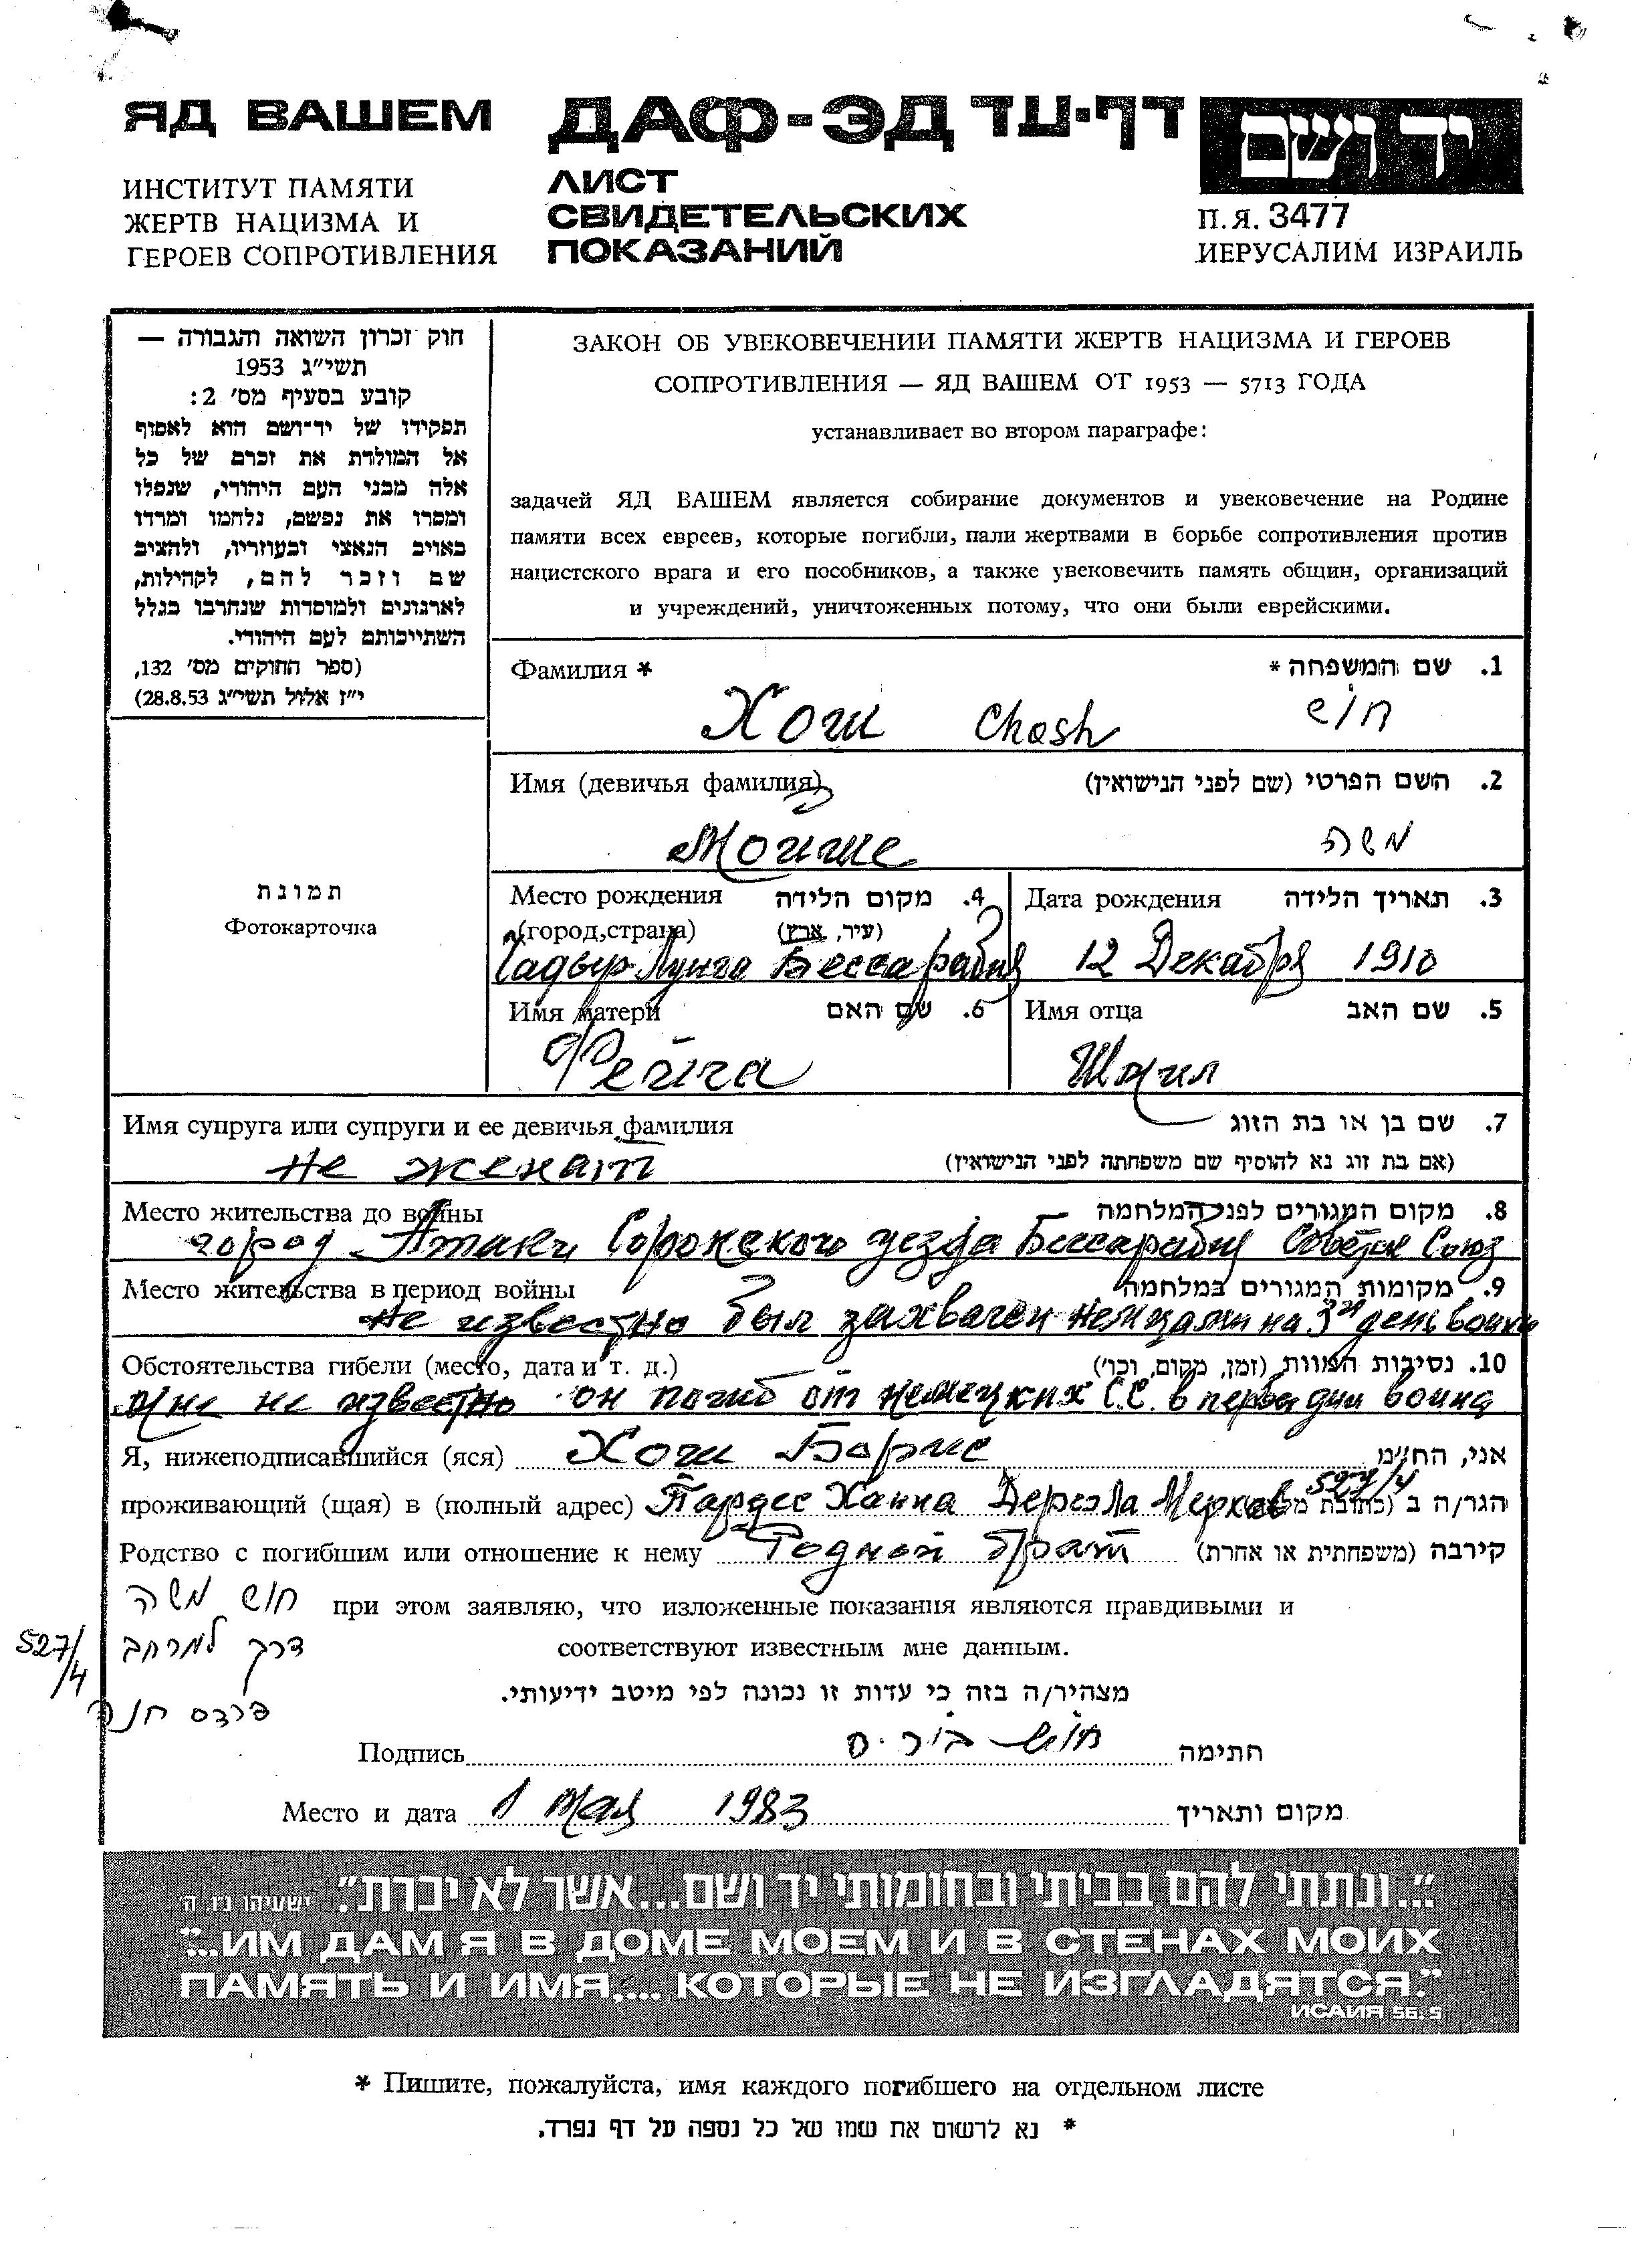 ЯД ВАШЕМ
ИНСТИТУТ ПАМЯТИ
ЖЕРТВ НАЦИЗМА И
ГЕРОЕВ СОПРОТИВЛЕНИЯ
ДАФ-ЭД דף-עד
ЛИСТ
СВИДЕТЕЛЬСКИХ
ПОКАЗАНИЙ
יד ושם
П.Я. 3477
ИЕРУСАЛИМ ИЗРАИЛЬ
חוק זכרון השואה והגבורה —
תשי״ג 1953
קובע בסעיף מס׳ 2:
תפקידו של יד־ושם הוא לאסוף
אל המולדת את זכרם של כל
אלה מבני העם היהודי, שנפלו
ומסרו את נפשם, נלחמו ומרדו
באויב הנאצי ובעוזריו, ולהציב
שם וזכר להם, לקהילות,
לארגונים ולמוסדות שנחרבו בגלל
השתייכותם לעם היהודי.
(ספר החוקים מס׳ 132,
י״ז אלול תשי״ג 28.8.53)
ЗАКОН ОБ УВЕКОВЕЧЕНИИ ПАМЯТИ ЖЕРТВ НАЦИЗМА И ГЕРОЕВ
СОПРОТИВЛЕНИЯ — ЯД ВАШЕМ ОТ 1953 — 5713 ГОДА
устанавливает во втором параграфе:
задачей ЯД ВАШЕМ является собирание документов и увековечение на Родине
памяти всех евреев, которые погибли, пали жертвами в борьбе сопротивления против
нацистского врага и его пособников, а также увековечить память общин, организаций
и учреждений, уничтоженных потому, что они были еврейскими.
Фамилия * 1. שם המשפחה *
Хош Chosh חוש
Имя (девичья фамилия) 2. השם הפרטי (שם לפני הנישואין)
Мойше משה
תמונת
Фотокарточка
Место рождения 4. מקום הלידה
(город,страна) (עיר, ארץ)
Чадыр-Лунга Бессарабия
Дата рождения 3. תאריך הלידה
12 Декабря 1910
Имя матери 6. שם האם
Фейга
Имя отца 5. שם האב
Шмил
Имя супруга или супруги и ее девичья фамилия 7. שם בן או בת הזוג
не женат (אם בת זוג נא להוסיף שם משפחתה לפני הנישואין)
Место жительства до войны 8. מקום המגורים לפני המלחמה
город Атаки Сорокского уезда Бессарабия Советск Союз
Место жительства в период войны 9. מקומות המגורים במלחמה
не известно был захвачен немцами на 3й день войны
Обстоятельства гибели (место, дата и т. д.) 10. נסיבות המוות (זמן, מקום, וכו׳)
мне не известно он погиб от немецких С.С. в первы дни война
Я, нижеподписавшийся (яся) Хош Борис אני, הח״מ
проживающий (щая) в (полный адрес) Пардес Ханна Дерех Ла Мерхав 527/4 הגר/ה ב (כתובת
Родство с погибшим или отношение к нему Родной брат קירבה (משפחתית או אחרת)
חוש משה
527/4 דרך למרחב
פרדס חנה
при этом заявляю, что изложенные показания являются правдивыми и
соответствуют известным мне данным.
מצהיר/ה בזה כי עדות זו נכונה לפי מיטב ידיעותי.
Подпись חוש בוריס חתימה
Место и дата 1 мая 1983 מקום ותאריך
״...ונתתי להם בביתי ובחומותי יד ושם...אשר לא יכרת״. ישעיהו נ״ו ה׳
"...ИМ ДАМ Я В ДОМЕ МОЕМ И В СТЕНАХ МОИХ
ПАМЯТЬ И ИМЯ.... КОТОРЫЕ НЕ ИЗГЛАДЯТСЯ."
ИСАИЯ 56. 5
* Пишите, пожалуйста, имя каждого погибшего на отдельном листе
* נא לרשום את שמו של כל נספה על דף נפרד.